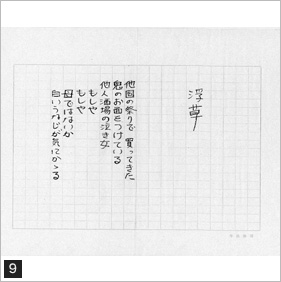 浮草
他国の祭りで 買ってきた
鬼のお面をつけている
他人酒場の泣き女
もしや
もしや
母ではないか
白いうなじが気にかゝる
9